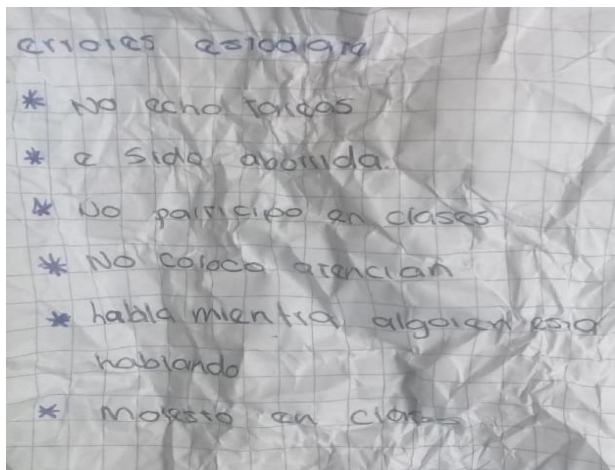 errores estodiara
* No echo tareas
* e sido aborrida.
* No participo en clases
* No coloco atencian
* habla mientra algoien esta
hablando
* molesto en clases